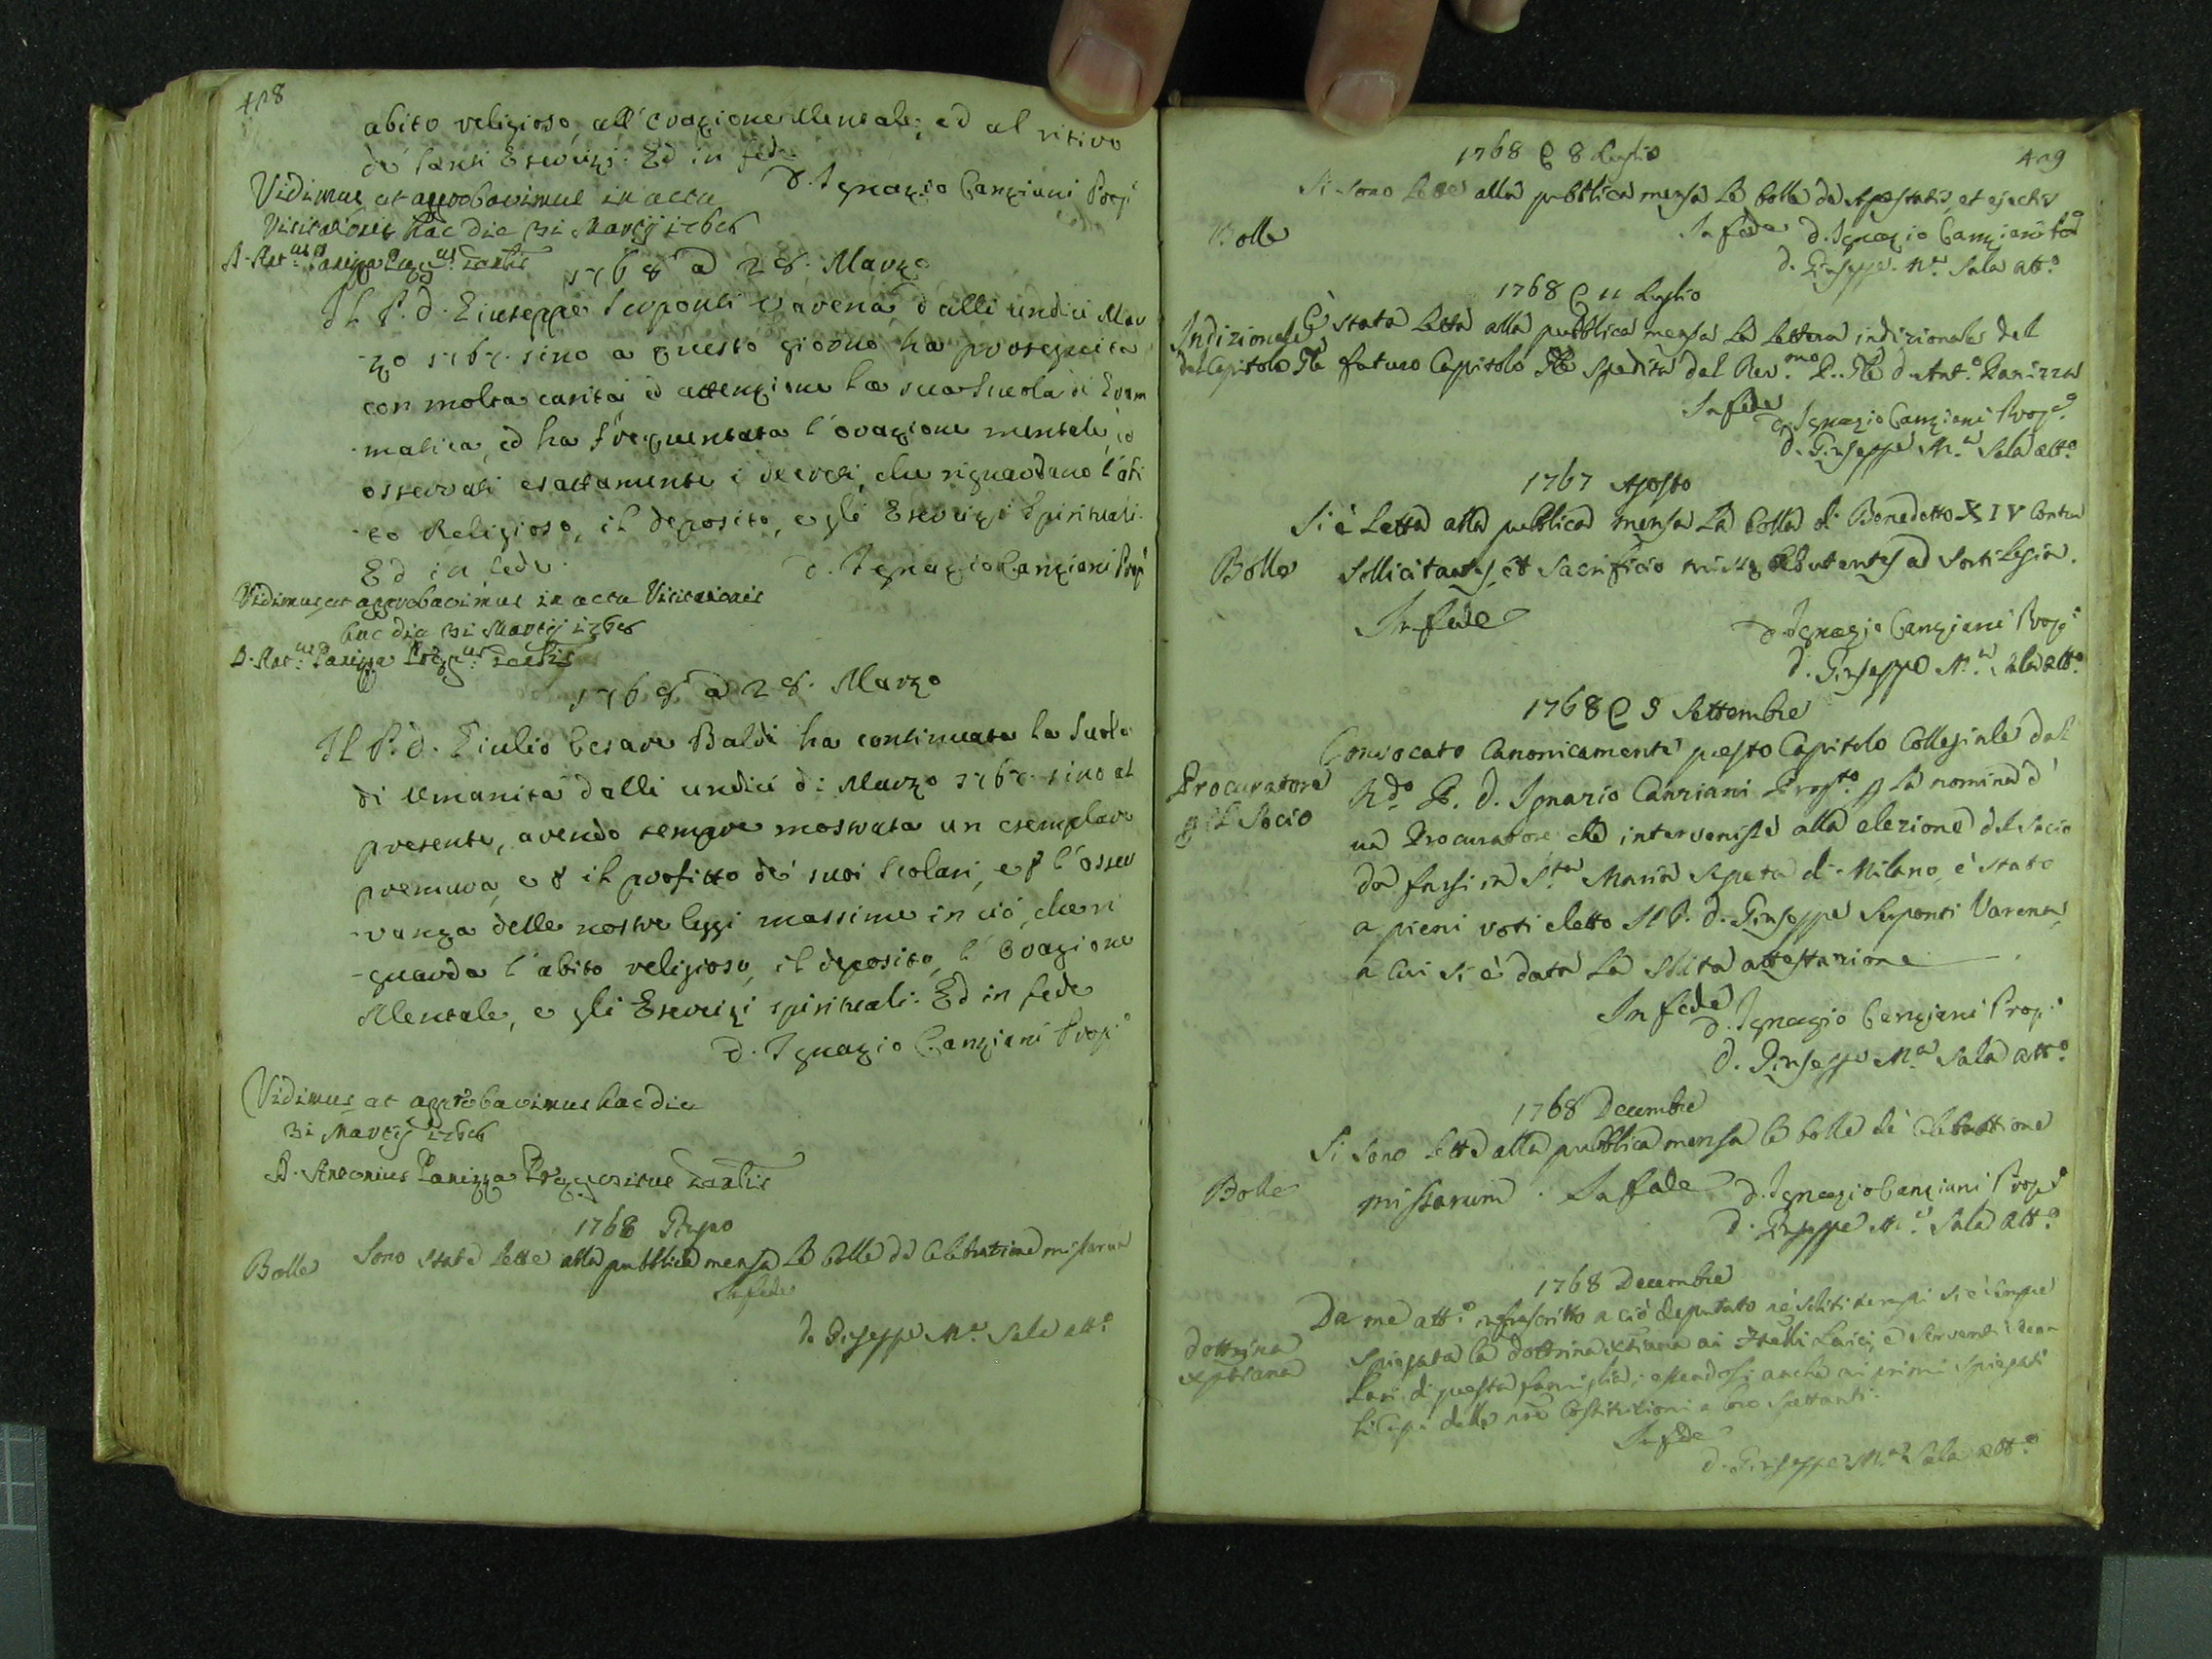 428
abito religioso, all'Orazione Mentale, ed al ritiro
de' santi Esercizi. Ed in fede
D. Ignazio Canziani Prep.°
Vidimus et approbavimus in actu
Visitationis hac die 31 Martij 1768
D. Ant.us Panizza Prep.us Gen.lis
1768 a 28. Marzo
Il P. D. Giuseppe Serponti Varena, dalli undici Mar
-zo 1767. sino a questo giorno ha proseguita
con molta carità ed attenzione la sua Scuola di Gram
-matica, ed ha frequentata l'orazione mentale, ed
osservati esattamente i decreti, che riguardano l'abi
-to Religioso, il deposito, e gli Esercizi Spirituali.
Ed in fede.
D. Ignazio Canziani Prep.°
Vidimus, et approbavimus in actu Visitationis
hac die 31 Martij 1768
D. Ant.us Panizza Prep.us Gen.lis
1768 a 28. Marzo
Il P. D. Giulio Cesare Baldi ha continuata la Scuola
di Umanità dalli undici di Marzo 1767. sino al
presente, avendo sempre mostrata un esemplare
premura, e p il profitto de' suoi Scolari, e p l'osser
-vanza delle nostre leggi massime in ciò, che ri
-guarda l'abito religioso, il deposito, l'Orazione
Mentale, e gli Esercizi spirituali. Ed in fede
D. Ignazio Canziani Prep.°
Vidimus, et approbavimus hac die
31 Martij 1768
D. Antonius Panizza Prepositus Gen.lis
1768 Giugno
Bolle
Sono state lette alla pubblica mensa le Bolle de Celebratione missarum
In fede
D. Giuseppe M.a Sala att.°
429
1768 a 8 Luglio
Si sono lette alla pubblica mensa le bolle de Apostatis, et ejectis
Bolle
In fede D. Ignazio Canziani Prep.°
D. Giuseppe M.a Sala att.°
1768 a 11 Luglio
Indizionale
del Capitolo Gle
È stata letta alla pubblica mensa la lettera indizionale del
futuro Capitolo Gle spedita dal Rev.mo P. Gle D. Ant.° Panizza
In fede
D. Ignazio Canziani Prep.°
D. Giuseppe M.a Sala att.°
1767 Agosto
Si è letta alla pubblica mensa la bolla di Benedetto XIV contra
Bolle
sollicitantes, et sacrificio missæ abutentes ad sortilegia.
In fede
D. Ignazio Canziani Prep.°
D. Giuseppe M.a Sala att.°
1768 a 5 Settembre
Convocato canonicamente questo Capitolo Collegiale dal
Procuratore
p il Socio
R.do P. D. Ignazio Canziani Prep.to p la nomina d'
un Procuratore che intervenisse alla elezione del Socio
da farsi in S.ta Maria Segreta di Milano, è stato
a pieni voti eletto Il P. D. Giuseppe Serponti Varena,
a cui si è data la solita attestazione.
In fede
D. Ignazio Canziani Prep.°
D. Giuseppe M.a Sala att.°
1768 Decembre
Si sono lette alla pubblica mensa le bolle de Celebratione
Bolle
missarum. In fede
D. Ignazio Canziani Prep.°
D. Giuseppe M.a Sala att.°
1768 Decembre
Da me att.° infrascritto a ciò deputato ne' soliti tempi si è sempre
dottrina
xpstiana
spiegata la dottrina xstiana ai Fratelli Laici, e Serventi seco
lari di questa famiglia; essendosi anche ai primi spiegati
li Capi delle nre Costituzioni a loro spettanti.
In fede
D. Giuseppe M.a Sala att.°